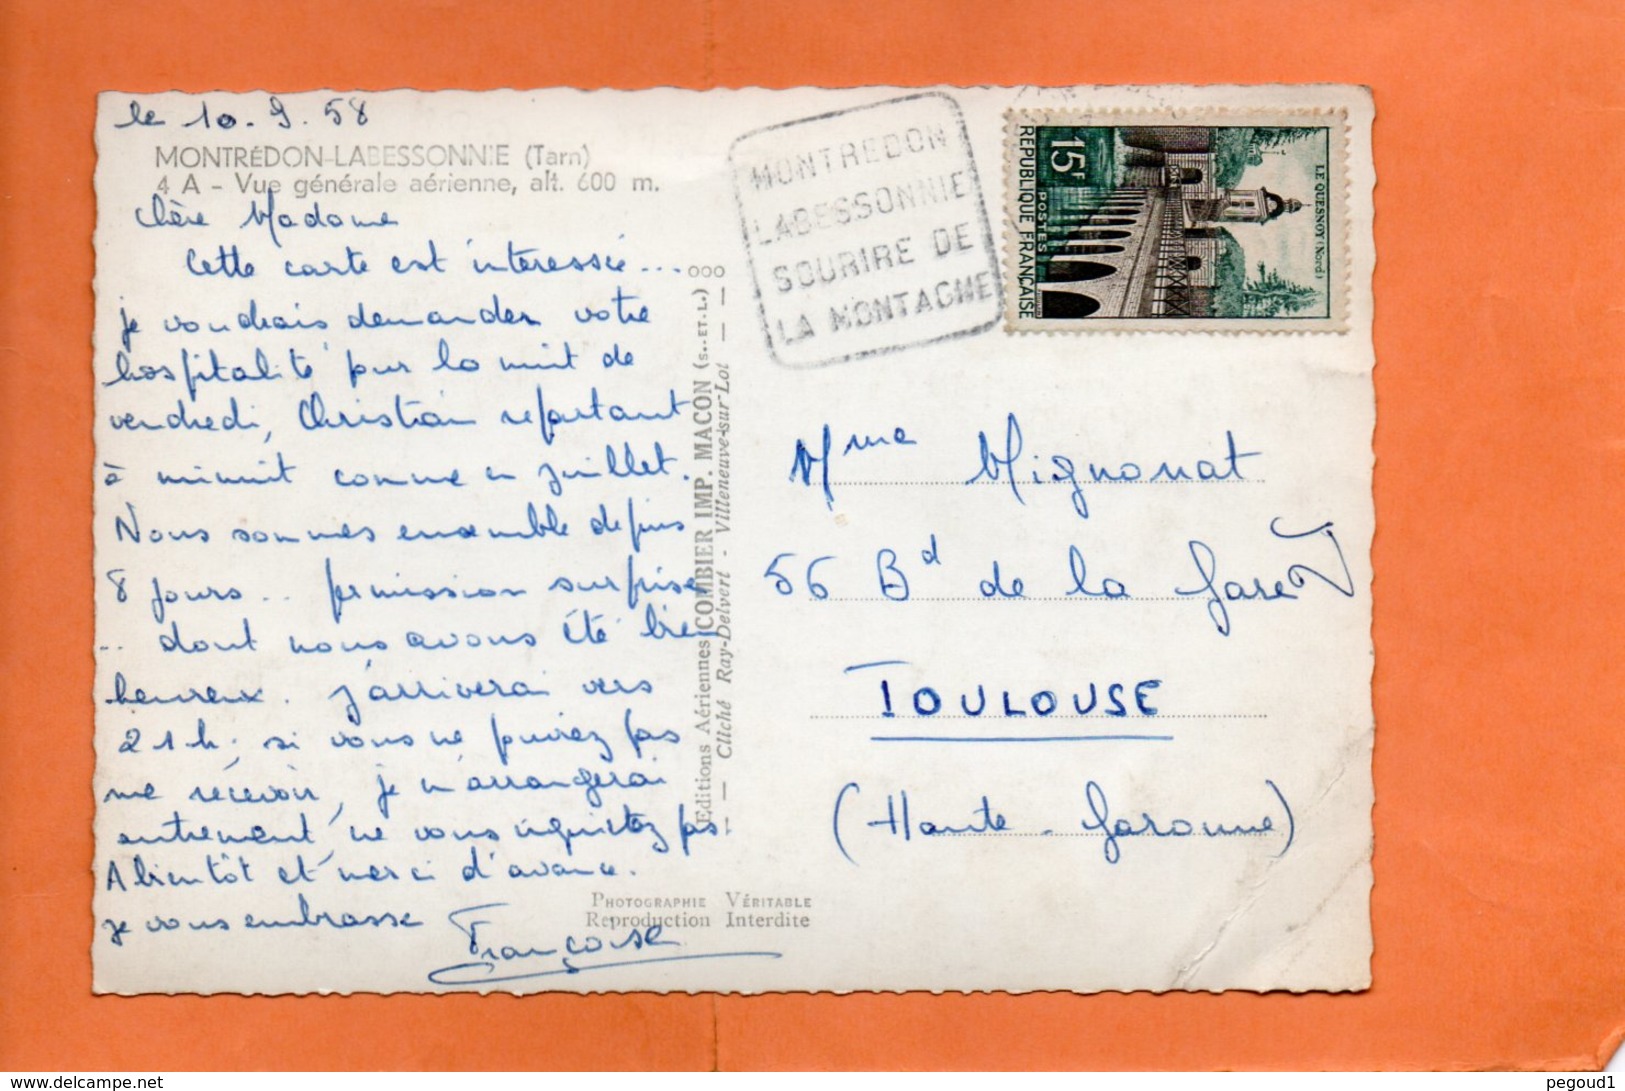 le 10.9.58
MONTRÉDON-LABESSONNIE (Tarn)
4 A - Vue générale aérienne, alt. 600 m.
Chère Madame
Cette carte est intéressée...
je voudrais demander votre
hospitalité pour la nuit de
vendredi, Christian repartant
à minuit comme en juillet.
Nous sommes ensemble depuis
8 jours.. permission surprise
.. dont nous avons été bien
heureux. J'arriverai vers
21h. si vous ne puivez pas
me recevoir, je m'arrangerai
autrement, ne vous inquiétez pas
A bientôt et merci d'avance.
je vous embrasse
Françoise
PHOTOGRAPHIE VÉRITABLE
Reproduction Interdite
Editions Aériennes COMBIER IMP. MACON (S.-ET-L.) ooo
— Cliché Ray-Delvert - Villeneuve-sur-Lot —
MONTREDON
LABESSONNIE
SOURIRE DE
LA MONTAGNE
15F
POSTES
RÉPUBLIQUE FRANÇAISE
LE QUESNOY (Nord)
Mme Mignonat
56 Bd de la Gare
TOULOUSE
(Haute-Garonne)
www.delcampe.net
pegoud1